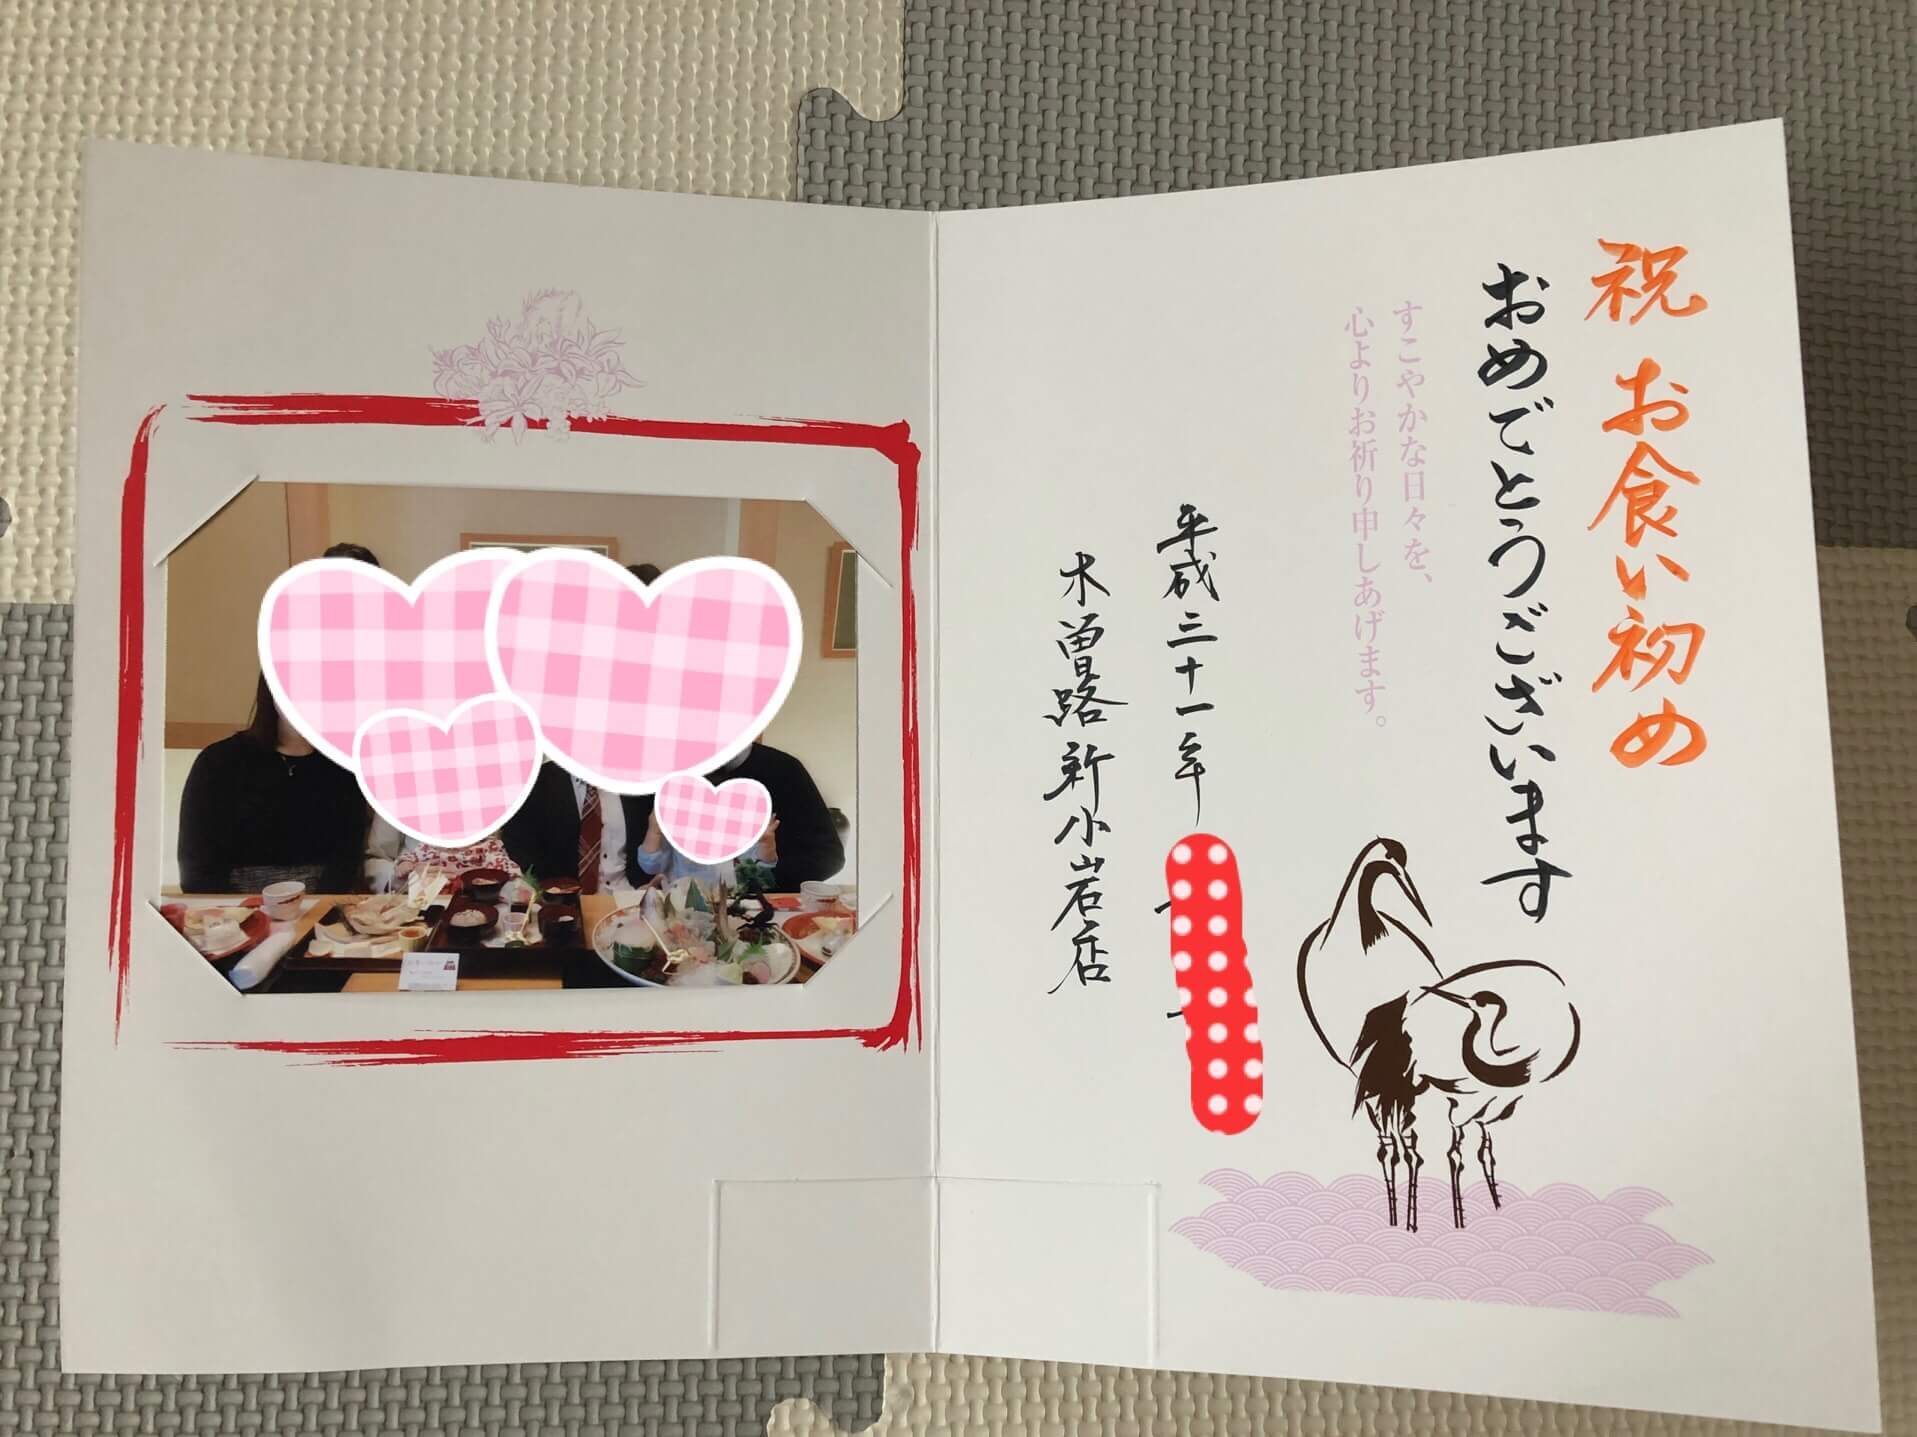 祝 お食い初め
おめでとうございます
すこやかな日々を、
心よりお祈り申しあげます。
平成三十一年
木曽路 新小岩店